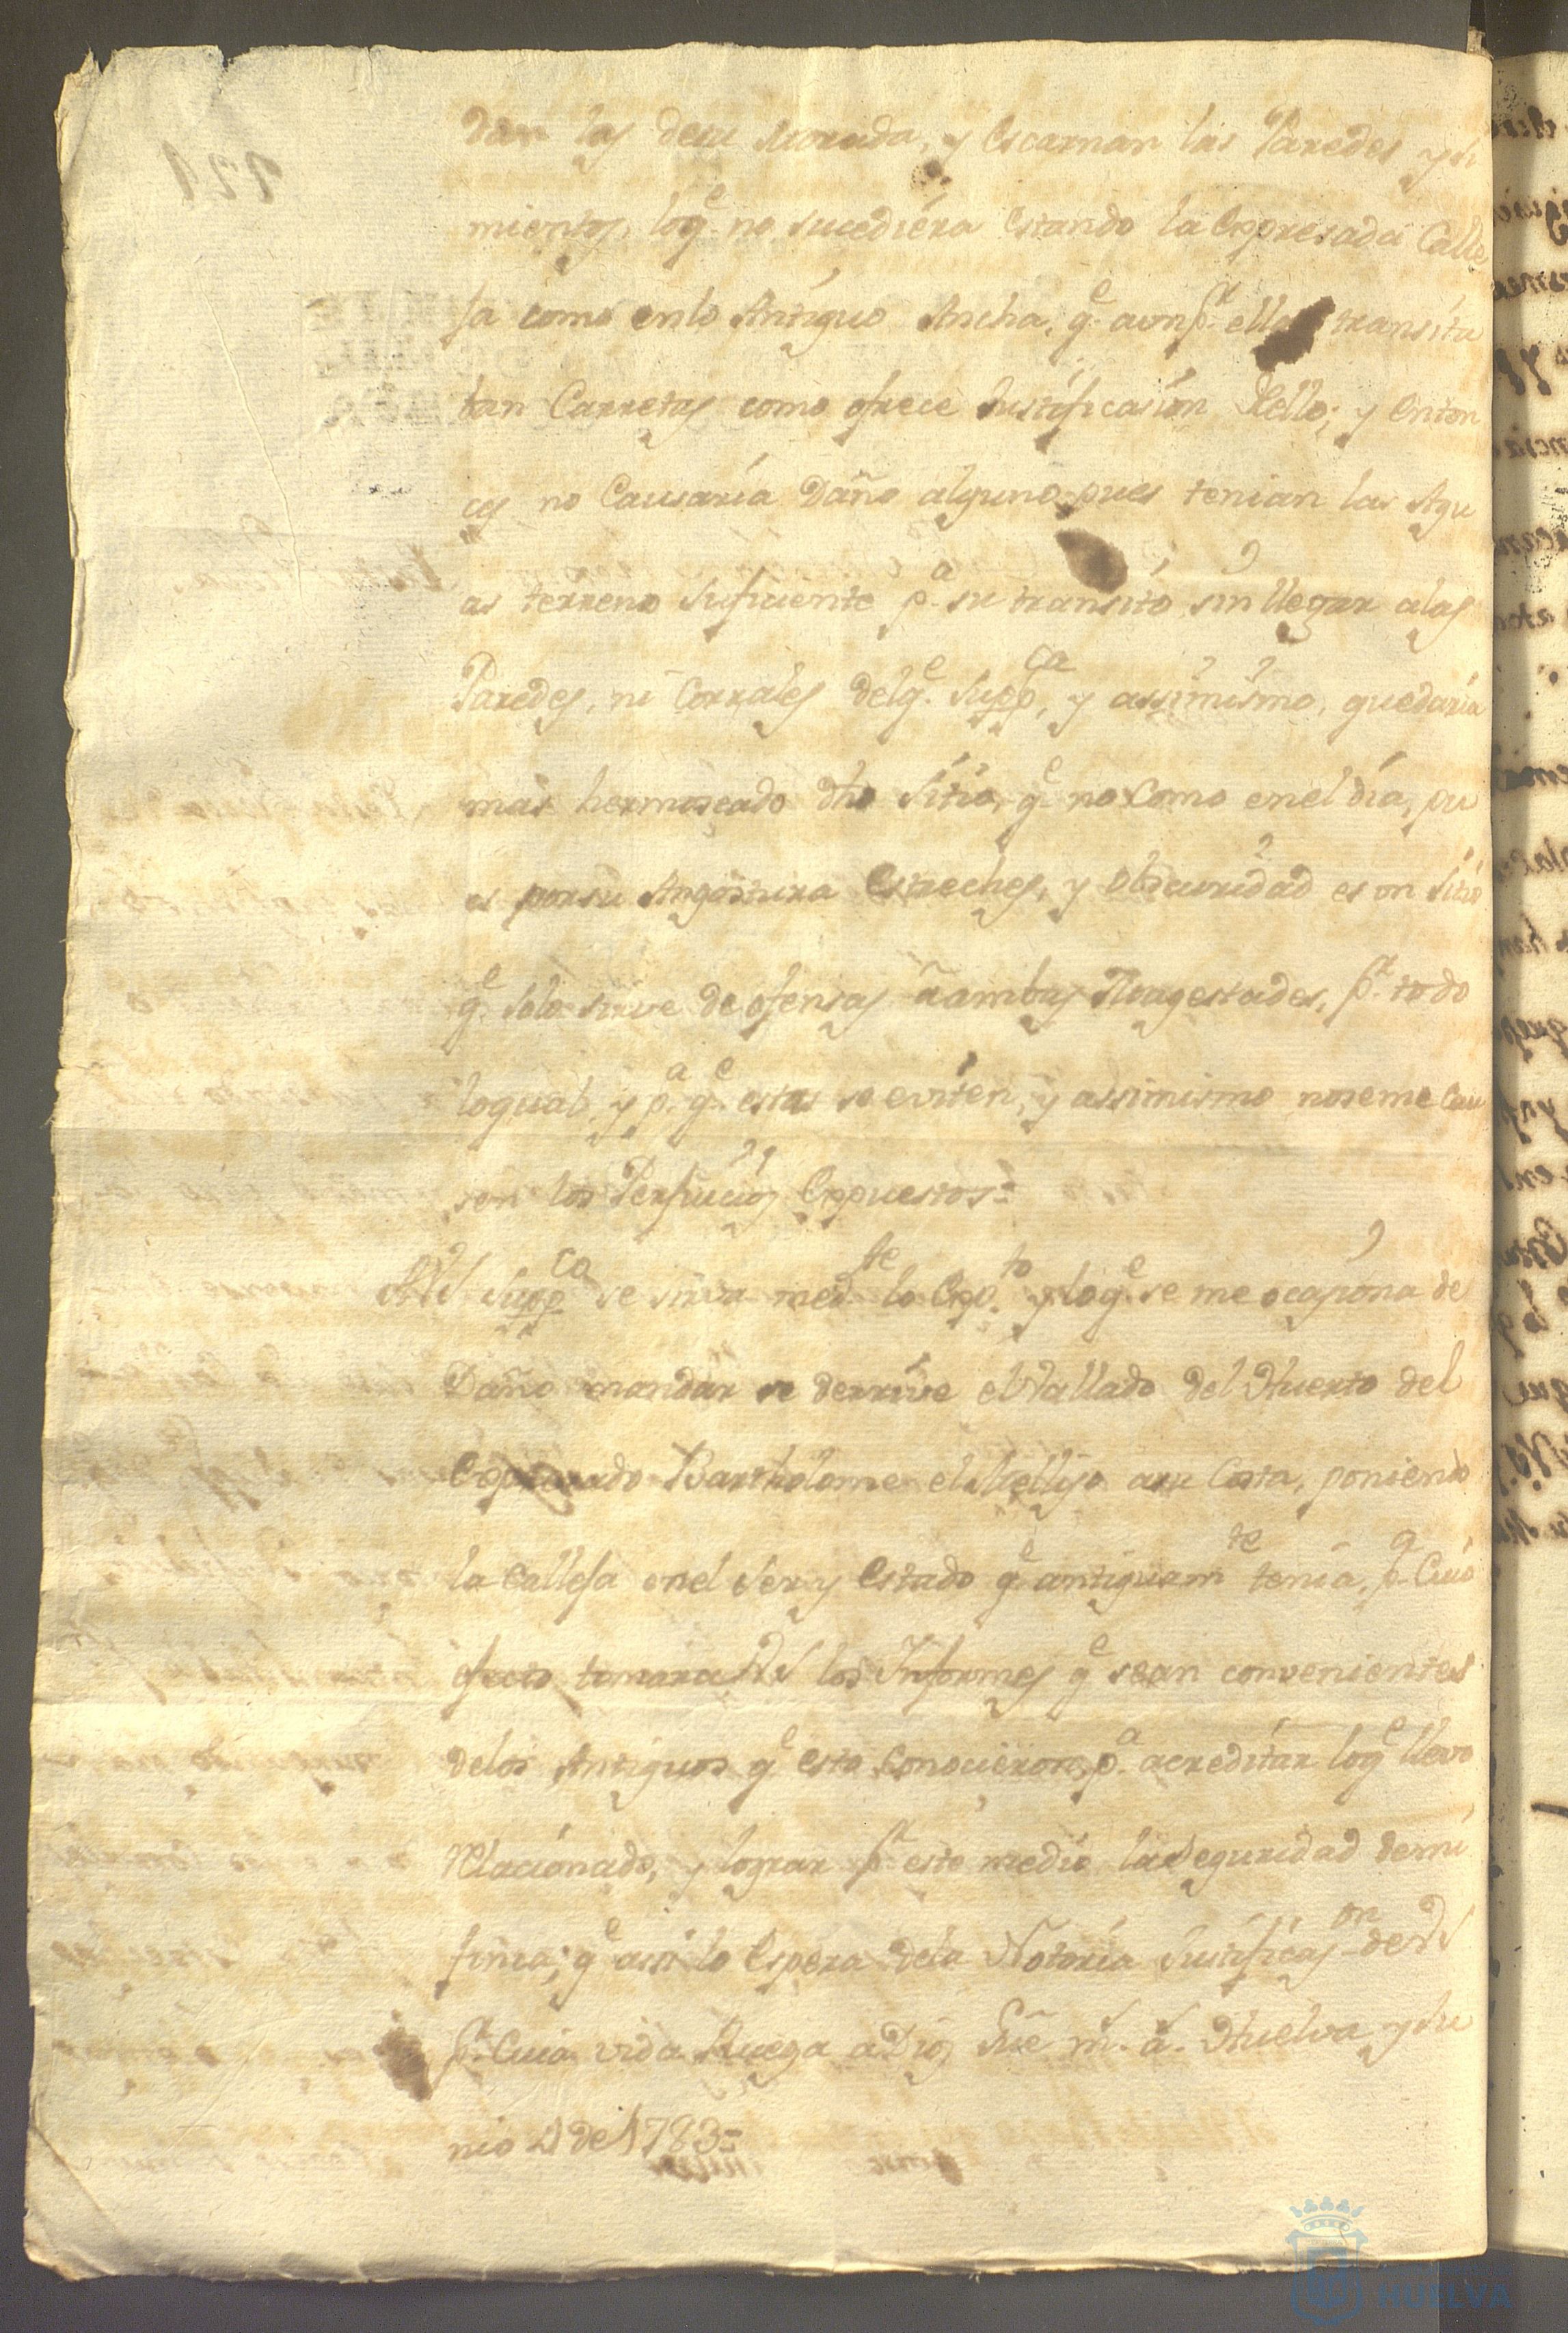 dan las desu morada, y escarnan las Paredes y si
mientos, loq.e no sucediera estando la expresada Calle
ja como enlo Antiguo Ancha, q.e aun p.r ella transita
ban Carretas como ofrece Justificasion dello; y enton
ces no Causaria Daño alguno pues tenian las Agu
as terreno suficiente p.a su transito sin llegar alas
Paredes, ni Corrales delq.e Supp.ca, y assimismo, quedaria
mas hermoseado dho sitio, q.e no como enel dia, pu
es porsu Angostura Estreches, y obscuridad es un sitio
q.e solo sirve de ofensas a ambas Magestades, p.r todo
loqual, y p.a q.e estas se eviten, y assimismo noseme cau
sen los Perjuicios Expuestos=
A VS Supp.ca se sirva med.te lo Exp.to y loq.e se me ocasiona de
Daño mandar se derrive el Vallado del Huerto del
Expresado Bartholome el Mellijo asu Costa, poniendo
la Calleja enel Ser y Estado q.e antiguam.te tenia, p.a Cuio
efecto tomara VS los Informes q.e sean convenientes
delos Antiguos q.e esto conocieron, p.a acreditar loq.e llevo
relacionado, y lograr p.r este medio la Seguridad demi
finca; q.e assi lo Espera dela Notoria Justificas.on de VS
p.r Cuia vida Ruega a Dios Gue m.s a.s Huelva y Ju
nio 4 de 1783=
HUELVA